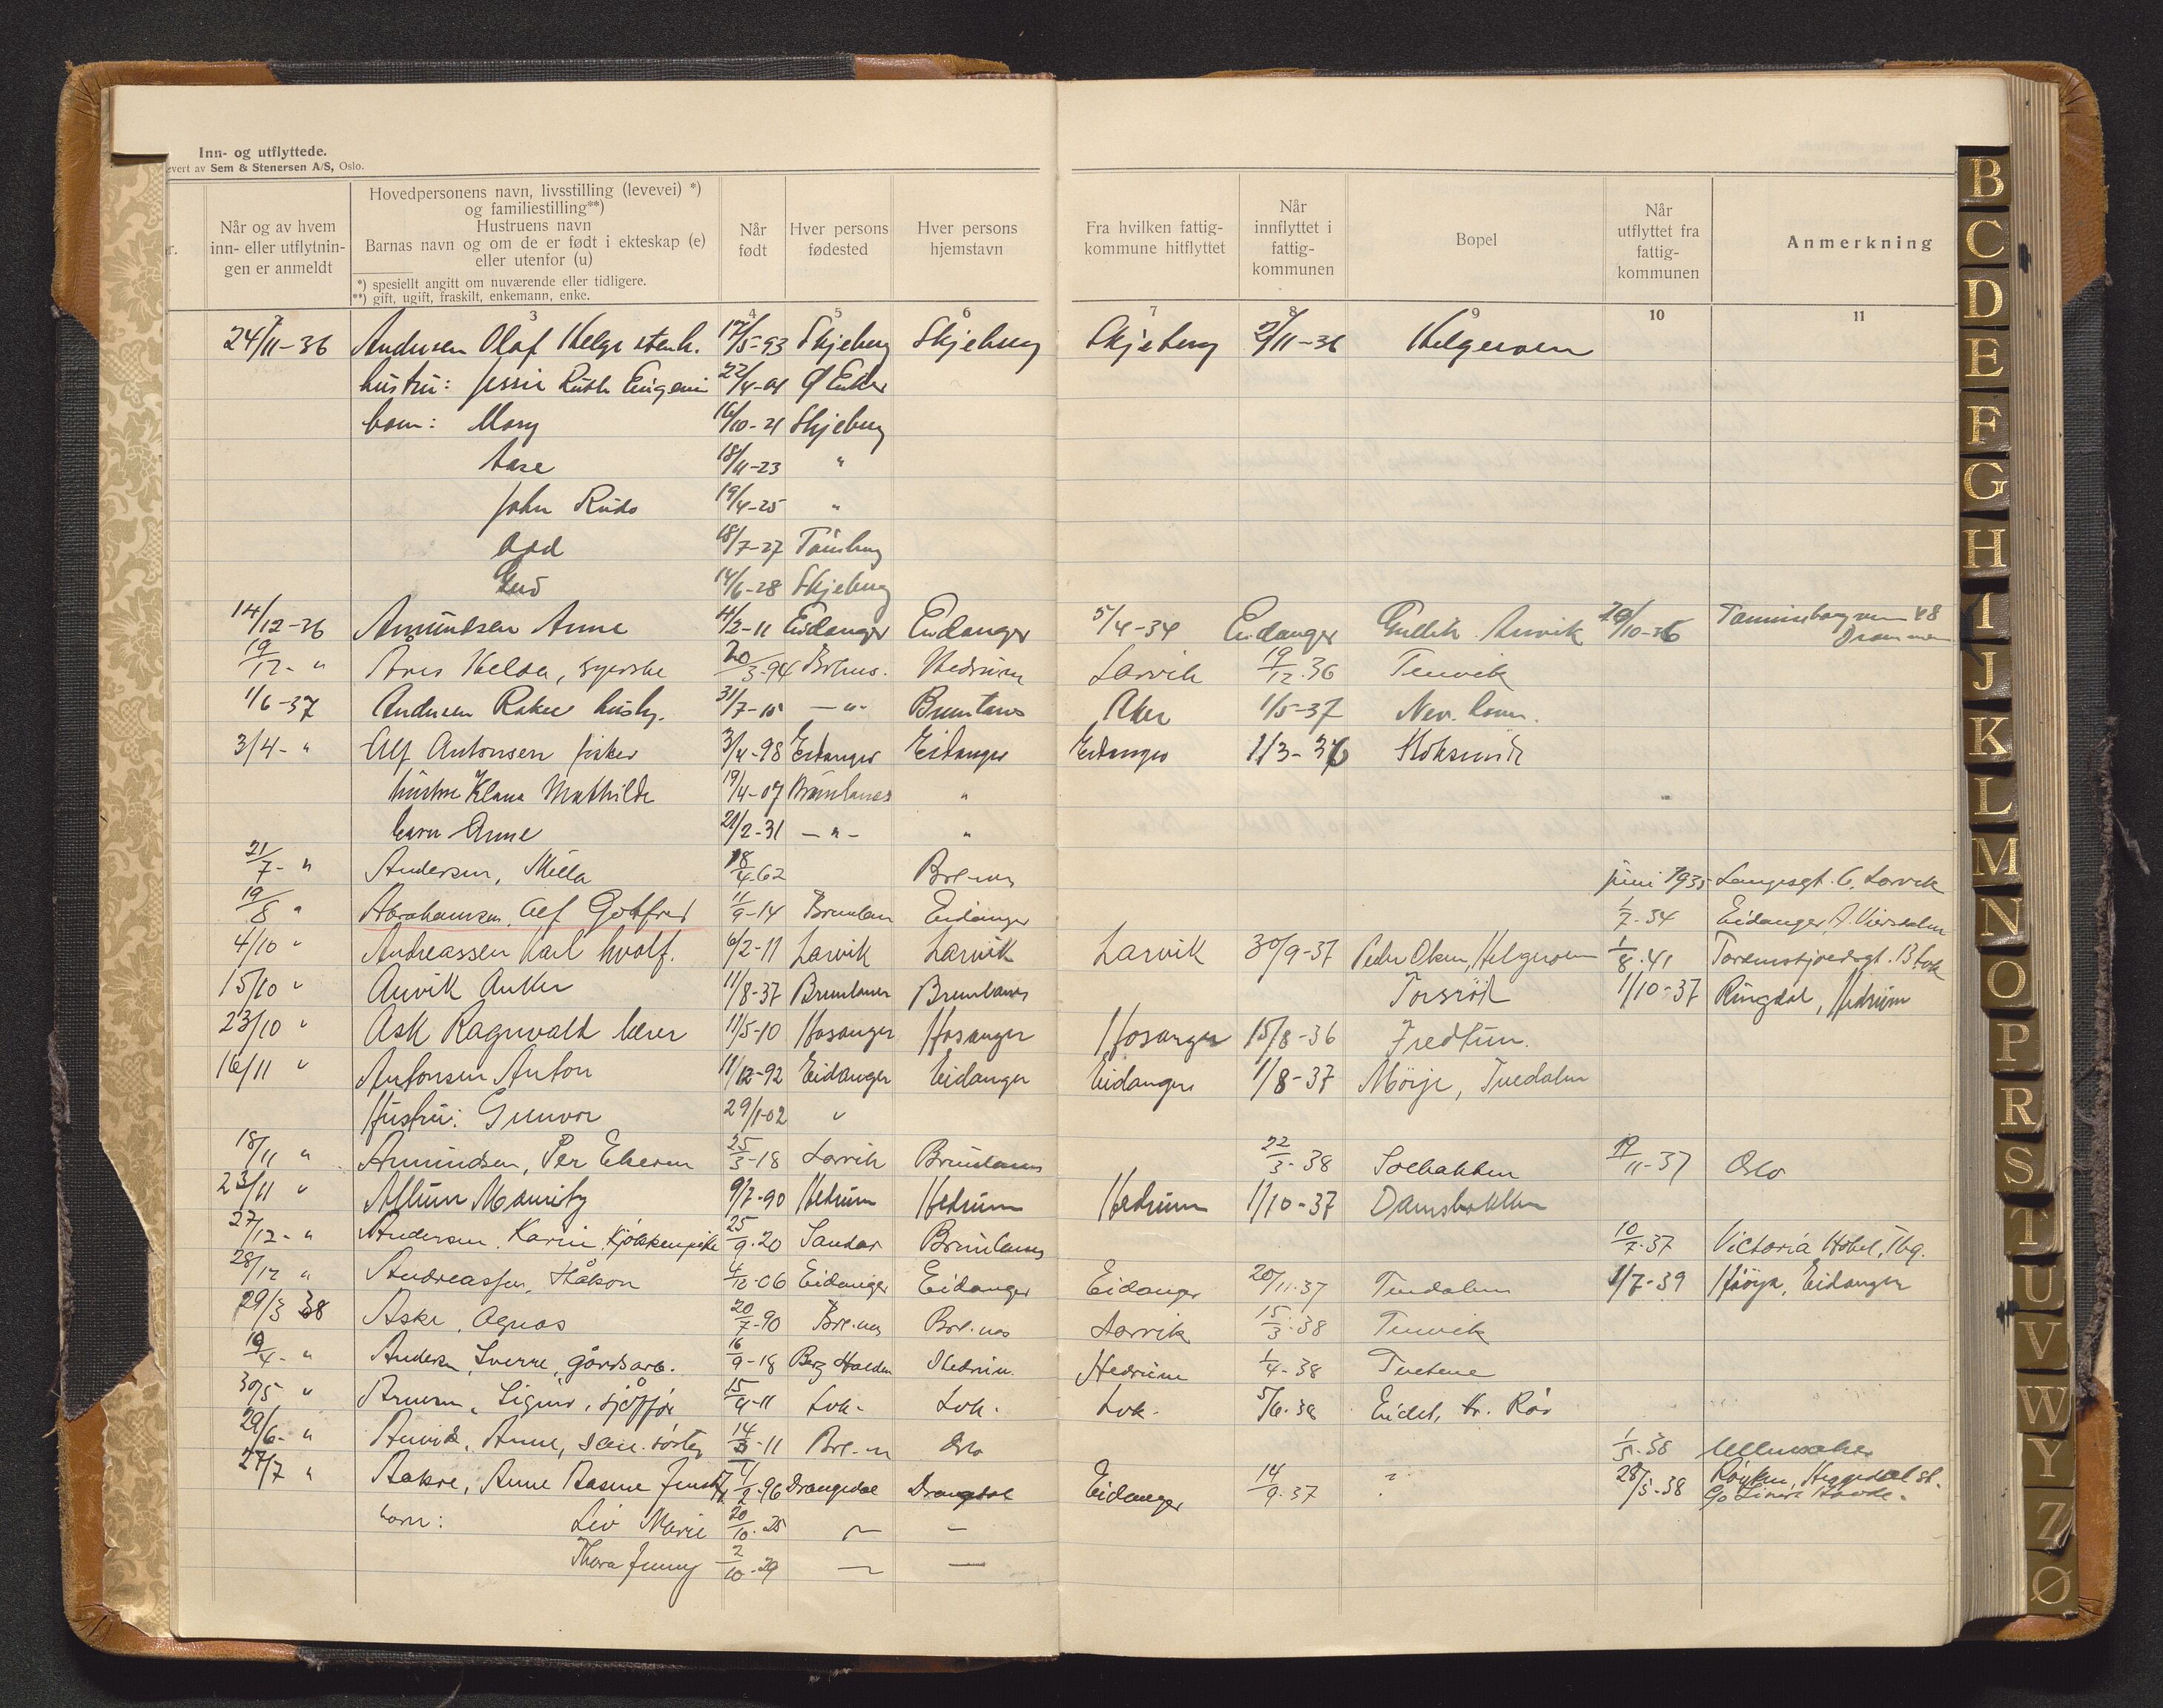 Inn- og utflyttede.
evert av Sem & Stenersen A/S, Oslo.
r.
Når og av hvem inn- eller utflytnin- gen er anmeldt
Hovedpersonens navn, livsstilling (levevei) *) og familiestilling**) Hustruens navn Barnas navn og om de er født i ekteskap (e) eller utenfor (u)
*) spesiellt angitt om nuværende eller tidligere.
**) gift, ugift, fraskilt, enkemann, enke.
Når født
Hver persons fødested
Hver persons hjemstavn
Fra hvilken fattig- kommune hitflyttet
Når innflyttet i fattig- kommunen
Bopel
Når utflyttet fra fattig- kommunen
Anmerkning
3 4 5 6 7 8 9 10 11
24/11-36 Andersen Olaf Helge stenh. 17/5-93 Skjeberg Skjeberg Skjeberg 2/11-36 Helgeroen
hustru: Jessie Ruth Eugenie 22/4-01
barn: Mary 16/10-21 Skjeberg
Aase 18/11-23 "
John 19/4-25 "
Odd 18/7-27 Tønsberg
14/6-28 Skjeberg
14/12-36 Amundsen Anne 4/2-11 Eidanger Eidanger 5/4-34 Eidanger Gullik Anvik 20/10-36 48 Drammen
19/12- " Helda, syerske 20/3-94 Brlnes. Hedrum Larvik 19/12-36 Tenvik
1/6-37 Andersen husby. 31/7-10 -"- Brunlanes Aker 1/5-37 Nev.
3/4- " Alf Antonsen fisker 3/4-98 Eidanger Eidanger Eidanger 1/3-36
hustru Klara Mathilde 19/4-07 Brunlanes "
barn Anne 21/2-31 -"- "
21/7- " Andersen, Milla 18/4-62 Brl-nes juni 1935 Langesgt. 6, Larvik
19/8 " Abrahamsen, Alf Gotfred 11/9-14 Brunlan Eidanger 1/7-34 Eidanger
4/10 " Andreassen Karl hvalf. 6/2-11 Larvik Larvik Larvik 30/9-37 Peder Olsen, Helgeroen 1/8-41
15/10 " Anvik Anker 11/8-37 Brunlanes Brunlanes Torsrød 1/10-37 Ringdal, Hedrum
23/10 " Ask Ragnvald lærer 11/5-10 Hosanger Hosanger Hosanger 15/8-36 Fredtun.
16/11 " Antonsen Anton 11/12-92 Eidanger Eidanger Eidanger 1/8-37 Mørje, Tvedalen
Hustru: Gunvor 29/1-02 "
18/11 " Amundsen, Per 25/3-18 Larvik Brunlanes 22/3-38 Solbakken 19/11-37 Oslo
23/11 " Allum Mauritz 9/7-90 Hedrum Hedrum Hedrum 1/10-37 Damsbakken
27/12- " Andersen, Karin, kjøkkenpike 25/9-20 Sandar Brunlanes 10/7-37 Victoria Hotel, Tbg.
28/12 " Andreassen, Håkon 4/12-06 Eidanger Eidanger Eidanger 20/11-37 Tvedalen 1/7-39 Eidanger
29/3 38 Aske, Agnes 20/7-90 Brl-nes Brl-nes Larvik 15/3-38 Tenvik
19/4- " Anders, Sverre, gårdsarb. 16/9-18 Berg Halden Hedrum. Hedrum 1/4-38 Tvetene
30/5 " Arnesen, Sigurd, sjåfør 15/9-11 Lvk- Lvk. Lvk- 5/6-38 Eidet,
29/6- " Anvik, Anne, søster 14/3-11 Brl-n Oslo 1/5-38 Ullensaker
27/7 " Aakre, Anne 4/2-96 Drangedal Drangedal Eidanger 14/9-37 " 28/5-38 Røyken, Heggedal st.
barn: Liv Marie 20/10-25
Thora Jenny 2/10-29
B
C
D
E
F
G
H
I
J
K
L
M
N
O
P
R
S
T
U
V
W
Y
Z
Ø